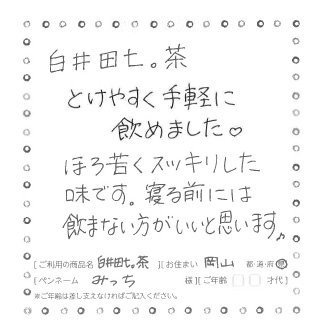 白井田七。茶
とけやすく手軽に
飲めました♡
ほろ苦くスッキリした
味です。寝る前には
飲まない方がいいと思います♪
[ご利用の商品名 白井田七。茶 ][お住まい 岡山 都・道・府・県]
[ペンネーム みっち 様][ご年齢 □□ 才代]
※ご年齢は差し支えなければご記入ください。